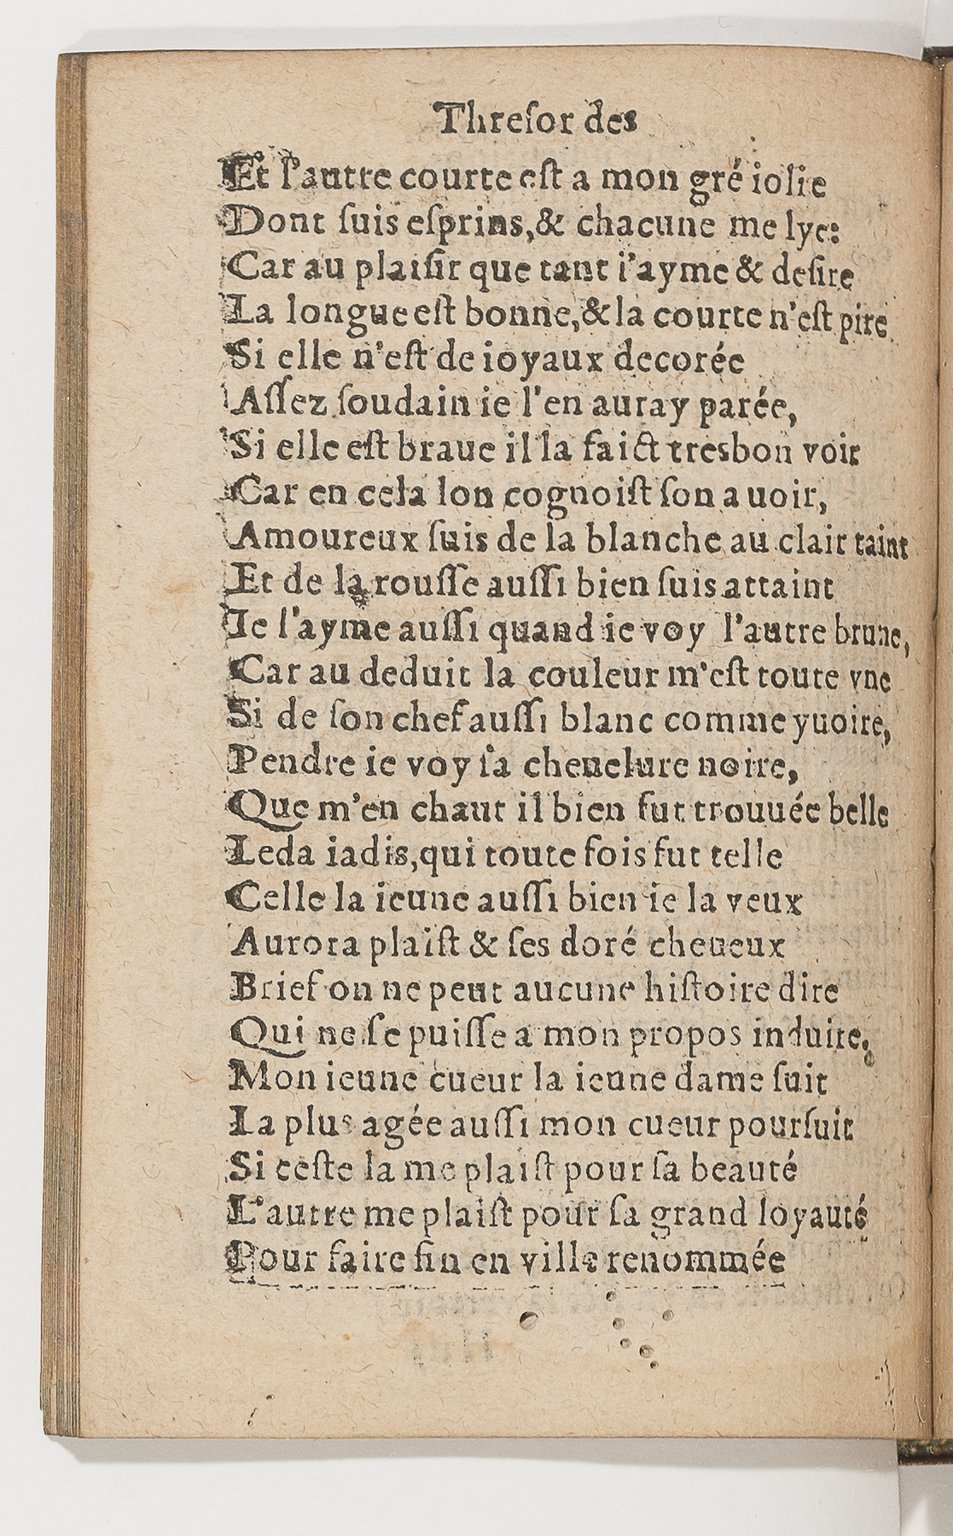 Threſor des
Et l'autre courte eſt a mon gré iolie
Dont ſuis eſprins,& chacune me lye:
Car au plaiſir que tant i'ayme & deſire
La longue eſt bonne,& la courte n'eſt pire
Si elle n'eſt de ioyaux decorée
Aſſez ſoudain ie l'en auray parée,
Si elle eſt braue il la faict tresbon voir
Car en cela lon cognoiſt ſon auoir,
Amoureux ſuis de la blanche au clair taint
Et de la rouſſe auſſi bien ſuis attaint
Ie l'ayme auſſi quand ie voy l'autre brune,
Car au deduit la couleur m'eſt toute vne
Si de ſon chef auſſi blanc comme yuoire,
Pendre ie voy ſa cheuelure noire,
Que m'en chaut il bien fut trouuée belle
Leda iadis,qui toute fois fut telle
Celle la ieune auſſi bien ie la veux
Aurora plaiſt & ſes doré cheueux
Brief on ne peut aucune hiſtoire dire
Qui ne ſe puiſſe a mon propos induire,
Mon ieune cueur la ieune dame ſuit
La plus agée auſſi mon cueur pourſuit
Si ceſte la me plaiſt pour ſa beauté
L'autre me plaiſt pour ſa grand loyauté
Pour faire fin en ville renommée